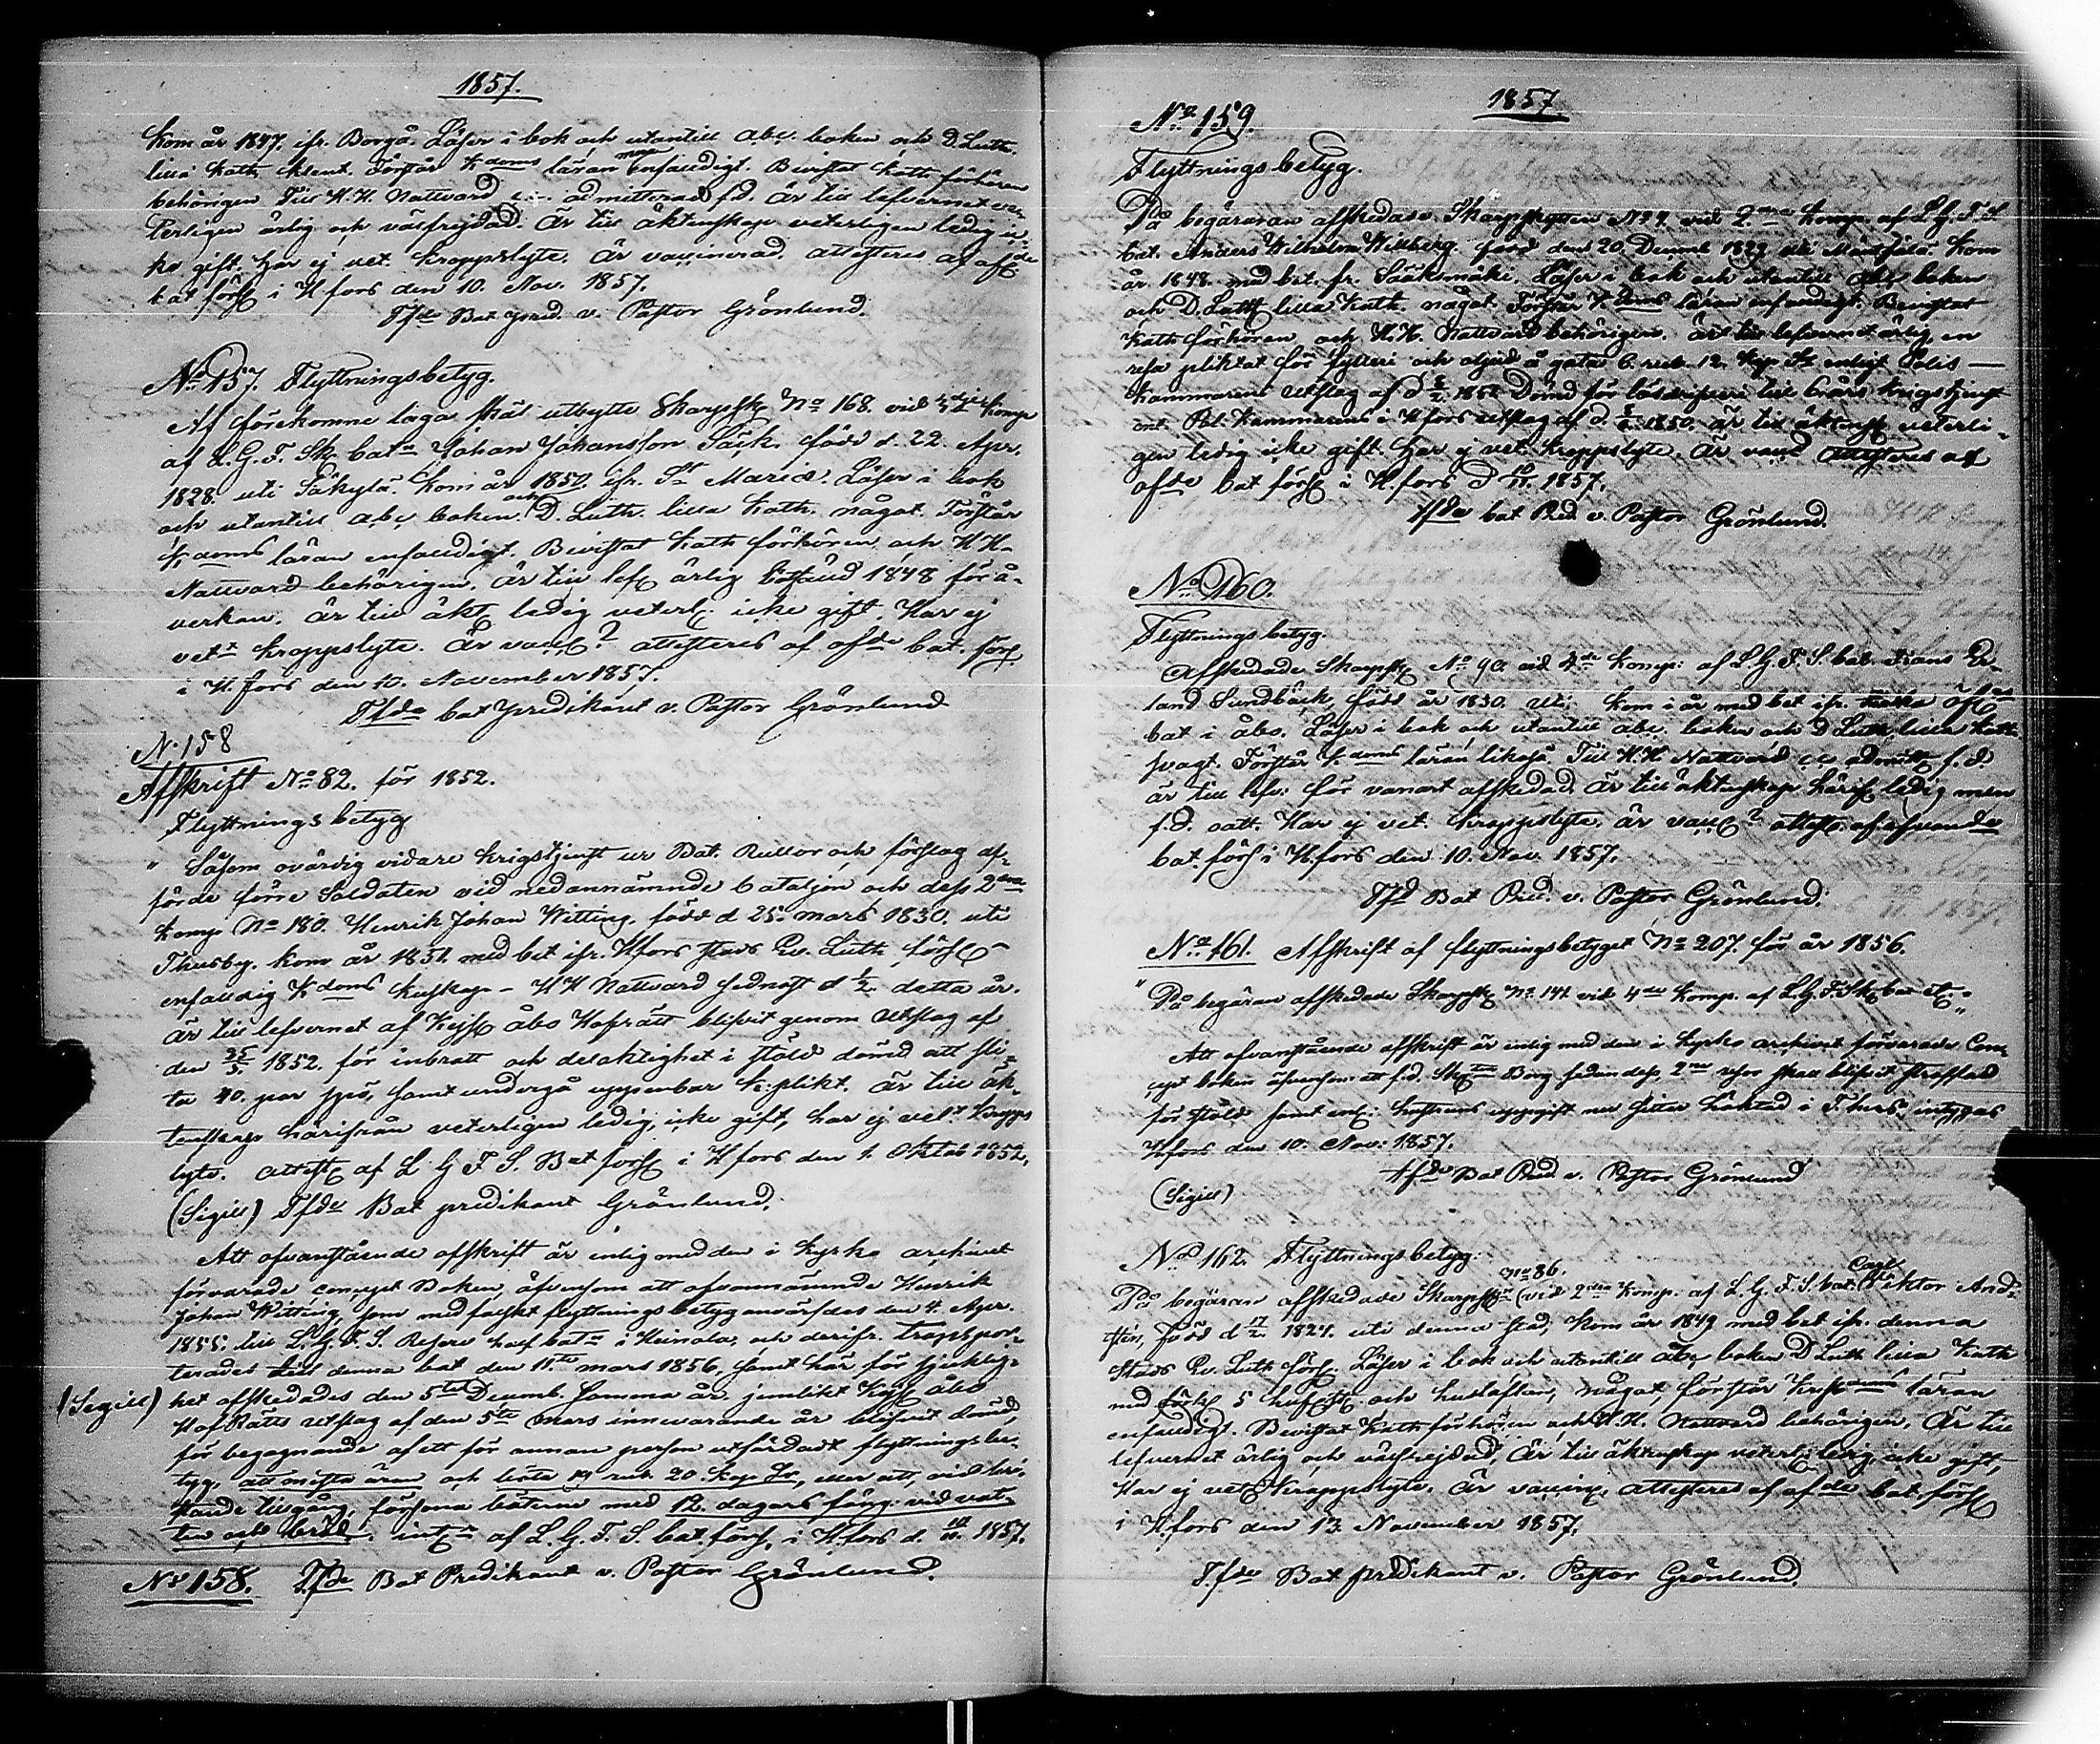 1857.
kom år 1847. ifr. Borgå. Läser i bok och utantill abc. boken och D. Luth.
lilla Kath. Förstår K.doms läran enfaldigt. Bevistat Kath förhören
behörigen Till H.H. Nattvard admitterad f.d. är till lefvernet
ärlig och välfrejdad. är till äktenskap veterligen ledig ic-
ke gift. Har ej vet. kroppslyte. är vaccinerad. attesteras af ofde
bat förs i H.fors den 10. Nov. 1857.
Tfde Bat pred. v. Pastor Grönlund.
No 157. Flyttningsbetyg.
Af förekomne laga skäl utbytte Skarpsk No 168. vid komp
af L.G.F. Sk. batn Johan Johansson Säck. född d. 22. Apr.
1828. uti Säkylä. kom år 1852. ifr. St Mariæ. Läser i bok
och utantill abc boken och D. Luth. lilla Kath. något. Förstår
K.doms läran enfaldigt. Bevistat Kath förhören och H.H.
Nattvard behörigen. är till lef ärlig 1848 för å-
verkan. är till äkt ledig veterl: icke gift. Har ej
vett kroppslyte. är vacc? attesteras af ofde bat. förs
i H.fors den 10. November 1857.
Tfde bat predikant v. Pastor Grönlund
N. 158
Afskrift No 82. för 1852.
Flyttningsbetyg
" Såsom ovärdig vidare krigstjenst ur Bat. Rullor och förslag af-
förde förre Soldaten vid nedannämnde bataljon och dess 2dra
komp No 180. Henrik Johan Witting, född d 25. mars 1830. uti
Thusby. kom år 1851 med bet ifr. Hfors stads Ev. Luth förs
enfaldig K.doms kunskap - H H Nattvard sednast d 1/2 detta år.
är till lefvernet af Kejs åbo Hofrätt blifvit genom utslag af
den 25/5 1852. för inbrott och delaktighet i stöld dömd att sli-
ta 40. par spö, samt undergå uppenbar K:plikt. är till äk-
tenskap härifrån veterligen ledig, icke gift, har ej vett kropps
lyte. attest af L G F S. Bat förs i H fors den 1. Oktob 1852.
(Sigill) Tfde Bat predikant Grönlund.
Att ofvanstående afskrift är enlig med den i kyrko archivet
förvarade concept Boken, äfvensom att ofvannämnde Henrik
Johan Witting, som med falskt flyttningsbetyg anvärfdes den 4. Apr.
1855. till L.G.F.S. Reserv half batn i Heinola, och derifr. transpor-
terades till denna bat den 11te mars 1856, samt här för sjuklig-
(Sigill) het afskedades den 5te Decemb. samma år, jemlikt Kejs åbo
Hof Rätts utslag af den 5te mars innevarande år blifvit dömd,
för begagnande af ett för annan person utfärdadt flyttningsbe-
tyg, att mista äran och böta 19 rub. 20. kop Sr, eller att, vid bri-
stande tillgång, försona böterna med 12. dagars fäng. vid vat-
ten och bröd. af L.G.F.S. bat. förs, i H.fors d. 1857.
No 158. Tfde Bat Predikant v. Pastor Grönlund.
1857
No 159.
Flyttningsbetyg.
På begäran afskedade Skarpskytten No 9. vid 2dra komp. af L.G.F.S
bat. Anders Wilhelm Willberg född den 20. Decemb 1829 uti Mäntsälä. kom
år. 1848. med bet. fr. Sääksmäki. Läser i bok och utantill abc boken
och D. Luth lilla Kath. något. Förstår K.doms läran enfaldigt. Bevistat
Kath förhören och H.H. Nattvard behörigen. är till lefvernet ärlig, en
resa pliktat för fylleri och oljud å gata 6. rub. 12. kop Sr enligt Polis-
kammarens utslag af d Dömd för lösdrifveri till 6 års krigstjenst
enl. Pol. kammarens i H fors utslag af d. 1850. är till äktensk veterli-
gen ledig icke gift. Har ej vet. kroppslyte. är vacc attesteras af
ofde bat förs i H.fors d 10/11. 1857.
tfde bat Pred. v. Pastor Grönlund.
No 160.
Flyttningsbetyg.
Afskedade Skarpsk No 90. vid 4de komp: af L.G.F.S. bat. Frans Er-
land Sundbäck, född år 1830. uti: kom i år med bet ifr.
bat i åbo. Läser i bok och utantill abc. boken och D Luth lilla Kath
svagt. Förstår K.doms läran likaså. Till H.H Nattvard admitt f.d
är till lefv: för vanart afskedad. är till äktenskap härifr ledig men
f.d. oatt. Har ej vet. kroppslyte. är vacc? attest: af ofvande
bat. förs i H.fors den 10. Nov. 1857.
Tfd Bat Pred. v. Pastor Grönlund.
No 161. Afskrift af flyttningsbetyget No 207. för år 1856.
" På begäran afskedade Skarpsk No. 141 vid 4de komp. af L.G.F.Sk bat etc "
Att ofvanstående afskrift är enlig med den i kyrko archivet förvarade Con-
cept boken äfvensom att f.d. Sk Borg sedan dess, 2ne resor skall blifvit straffad
för stöld samt enl: hustruns uppgift nu sitter häktad i T.hus, intygas
H.fors den 10. Nov: 1857.
tfde Bat Pred. v. Pastor Grönlund
(Sigill)
No 162. Flyttningsbetyg.
På begäran afskedade Skarpsk (No 86. vid 2dra komp. af L.G.F.S. bat. Carl Viktor And-
stén, född d 17/2. 1824. uti denna stad, kom år 1849 med bet ifr. denna
stads Ev. Luth förs. Läser i bok och utantill abc boken D Luth lilla Kath
med 5 hufst och hustaflan, något, förstår Krist.doms läran
enfaldigt. Bevistat Kath förhören och H.H. Nattvard behörigen. är till
lefvernet ärlig och välfrejdad, är till äktenskap veterl: ledig, icke gift,
Har ej vet kroppslyte. är vaccin, attesteras af ofde bat. förs
i H.fors den 13. November 1857.
T.fde Bat predikant v. Pastor Grönlund.